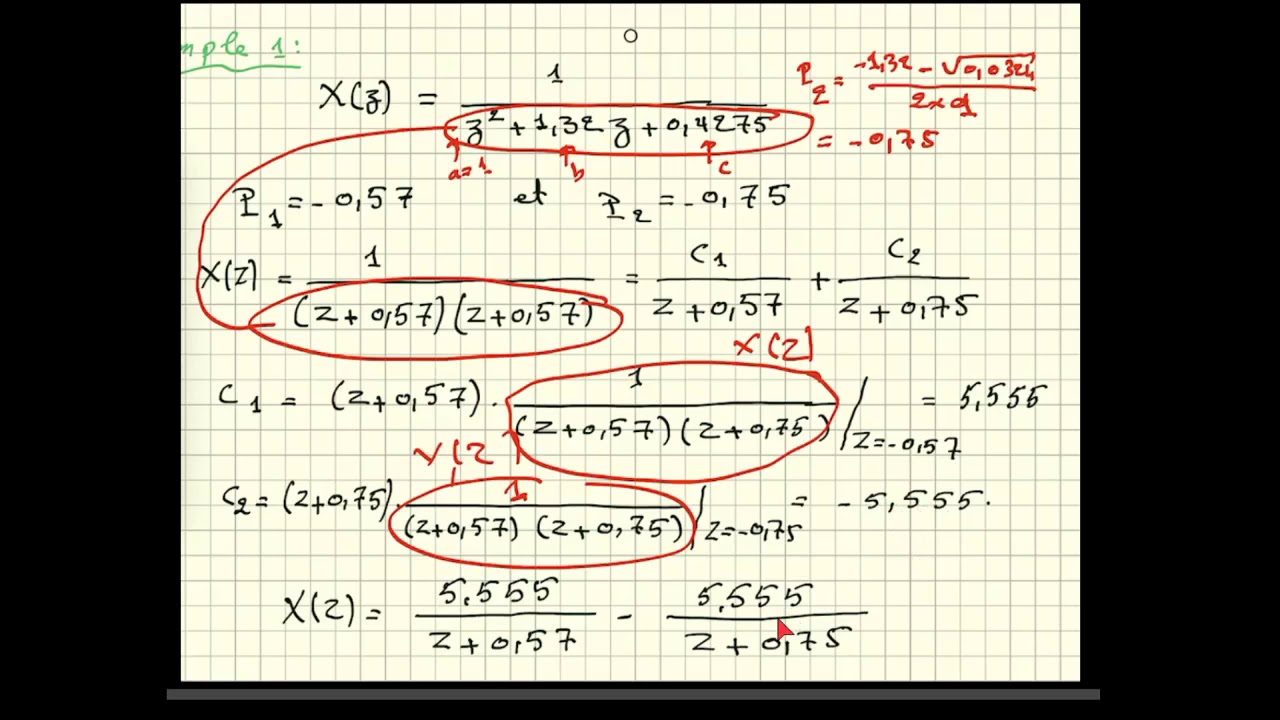 mple 1:
X(z) = 1 / (z² + 1,32 z + 0,4275)
P₂ = (-1,32 - √0,0324) / (2×1)
= -0,75
a=1 b c
P₁ = -0,57 et P₂ = -0,75
X(z) = 1 / (z+0,57)(z+0,57) = C₁ / (z+0,57) + C₂ / (z+0,75)
X(z)
C₁ = (z+0,57) . 1 / (z+0,57)(z+0,75) / z=-0,57 = 5,555
X(z)
C₂ = (z+0,75) . 1 / (z+0,57)(z+0,75) / z=-0,75 = -5,555.
X(z) = 5,555 / (z+0,57) - 5,555 / (z+0,75)